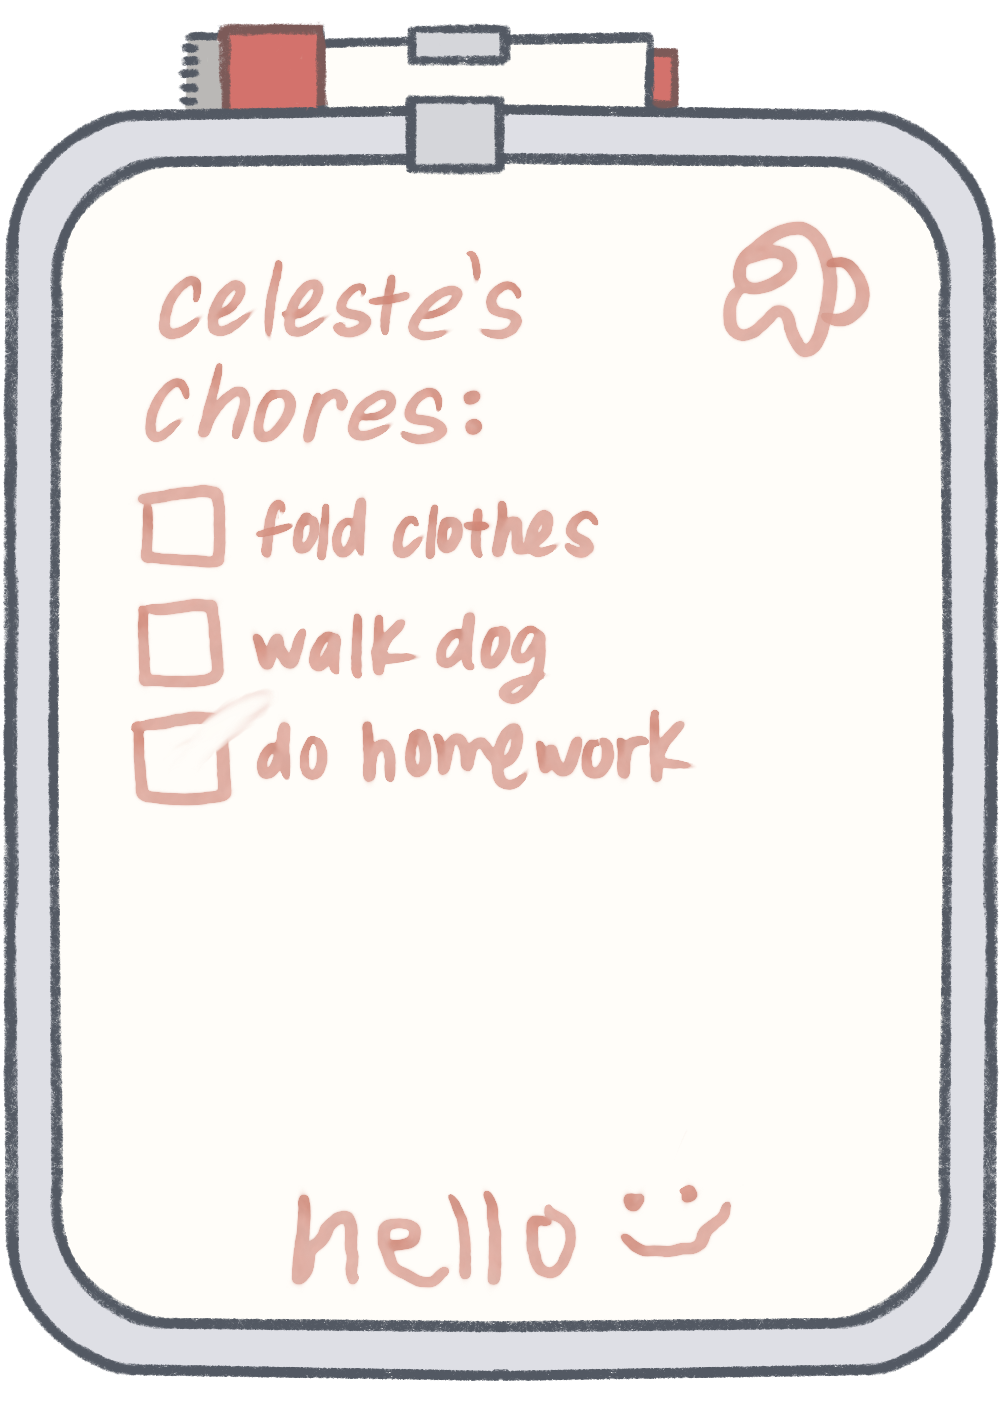 celeste's
chores:
fold clothes
walk dog
do homework
hello